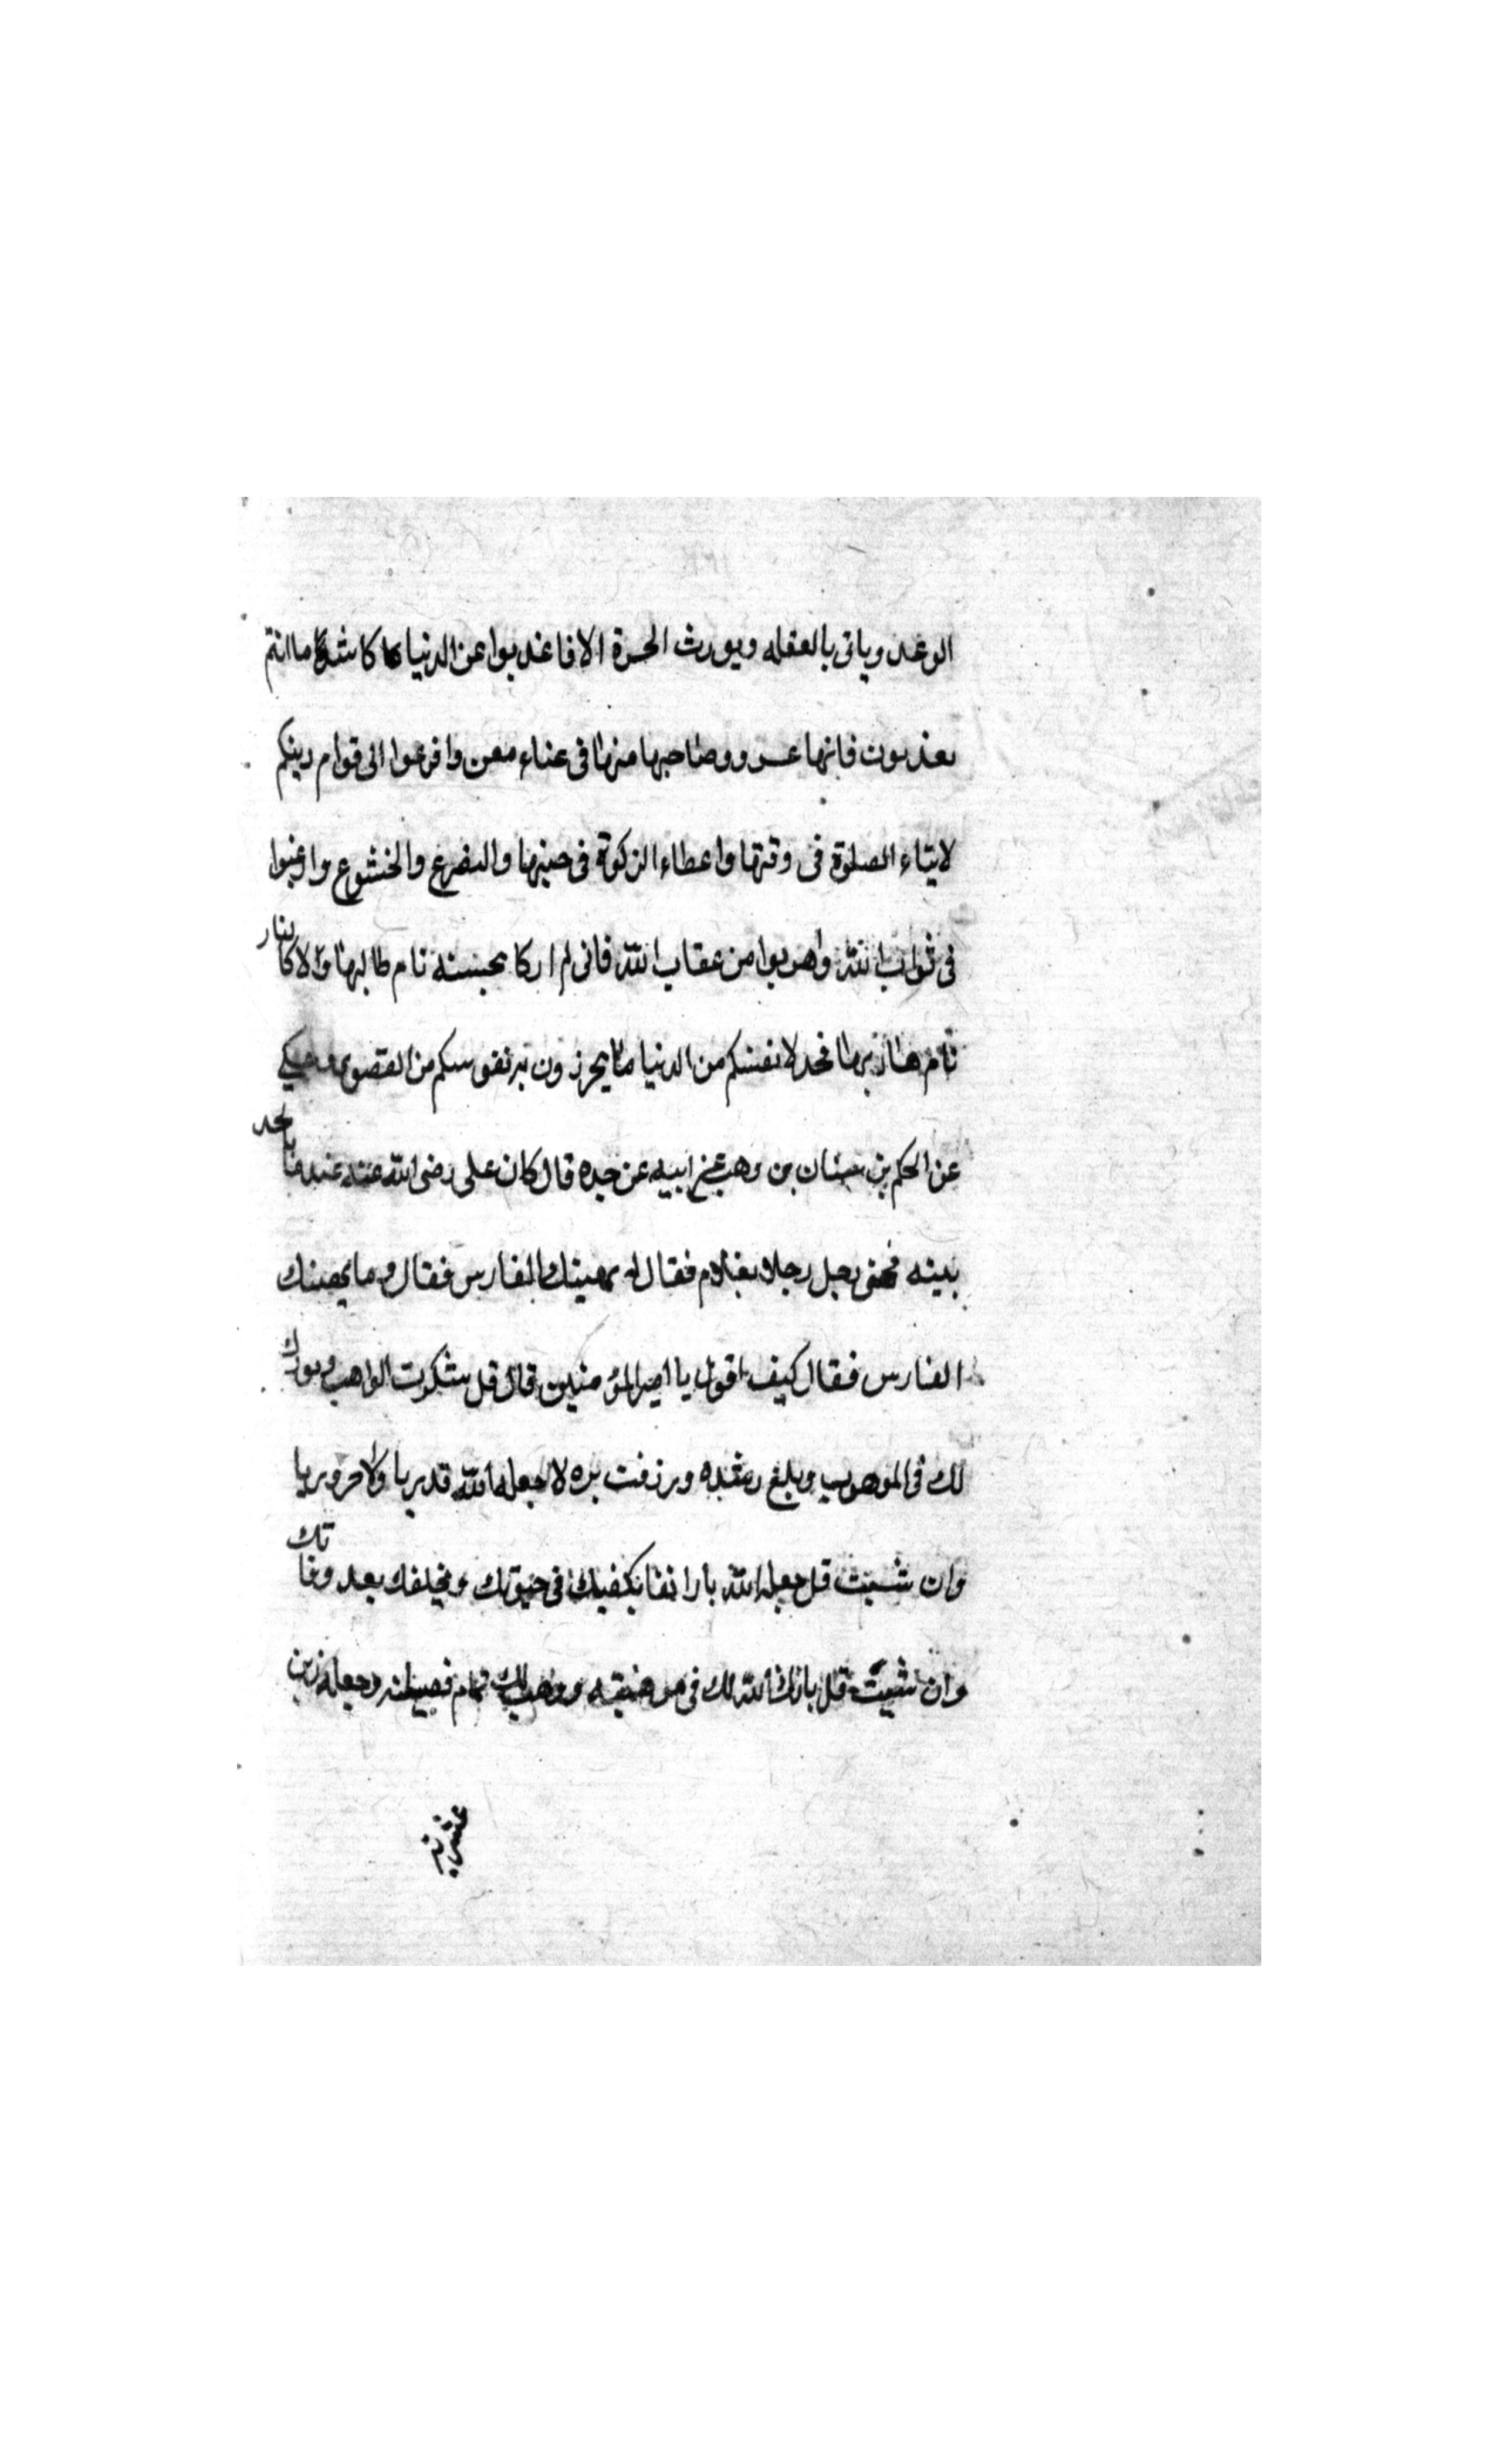 الوعد وياتى بالغفله ويورث الحسرة الا فاغدبوا عن الدنيا كاشد ما انتم
بعدبون فانها غرور وصاحبها منها فى عناء معن وافزعوا الى قوام دينكم
لايتاء الصلوة فى وقتها واعطاء الزكوة فى حينها والتضرع والخشوع وارغبوا
فى ثواب الله واهربوا من عقاب الله فانى لم ار كا بحسنه نام طالبها ولا كالنار
نام هاربها فخد لانفسكم من الدنيا ما يحرزون به نفوسكم من القصوى
عن الحكم بن سنان بن وهب عن ابيه عن جده قال كان على رضى الله عنه عندنا بالحد
بينه رجل رجلا بغلام فقال له يهينك الفارس فقال وما يهينك
الفارس فقال كيف اقول يا امير المؤمنين قال قل شكرت الواهب وبورك
لك فى الموهوب وبلغ رشده ورزقت بره لا جعله الله قدريا ولا حروريا
وان شيت قل جعله الله بارا نفا يكفيك فى حيوتك ويخلفك بعد وفاتك
وان شيت قل بارك الله لك فى موهبته ووهب لك تمام فصيلته وجعله زين
عشيرته